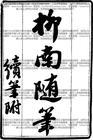 柳南随筆
續筆附